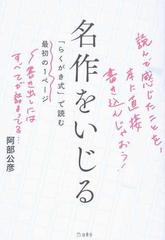 名作をいじる
「らくがき式」で読む
最初の1ページ
阿部公彦
読んで感じたことを、
本に直接
書き込んじゃおう!
書き出しには
すべてが詰まってる…
立東舎